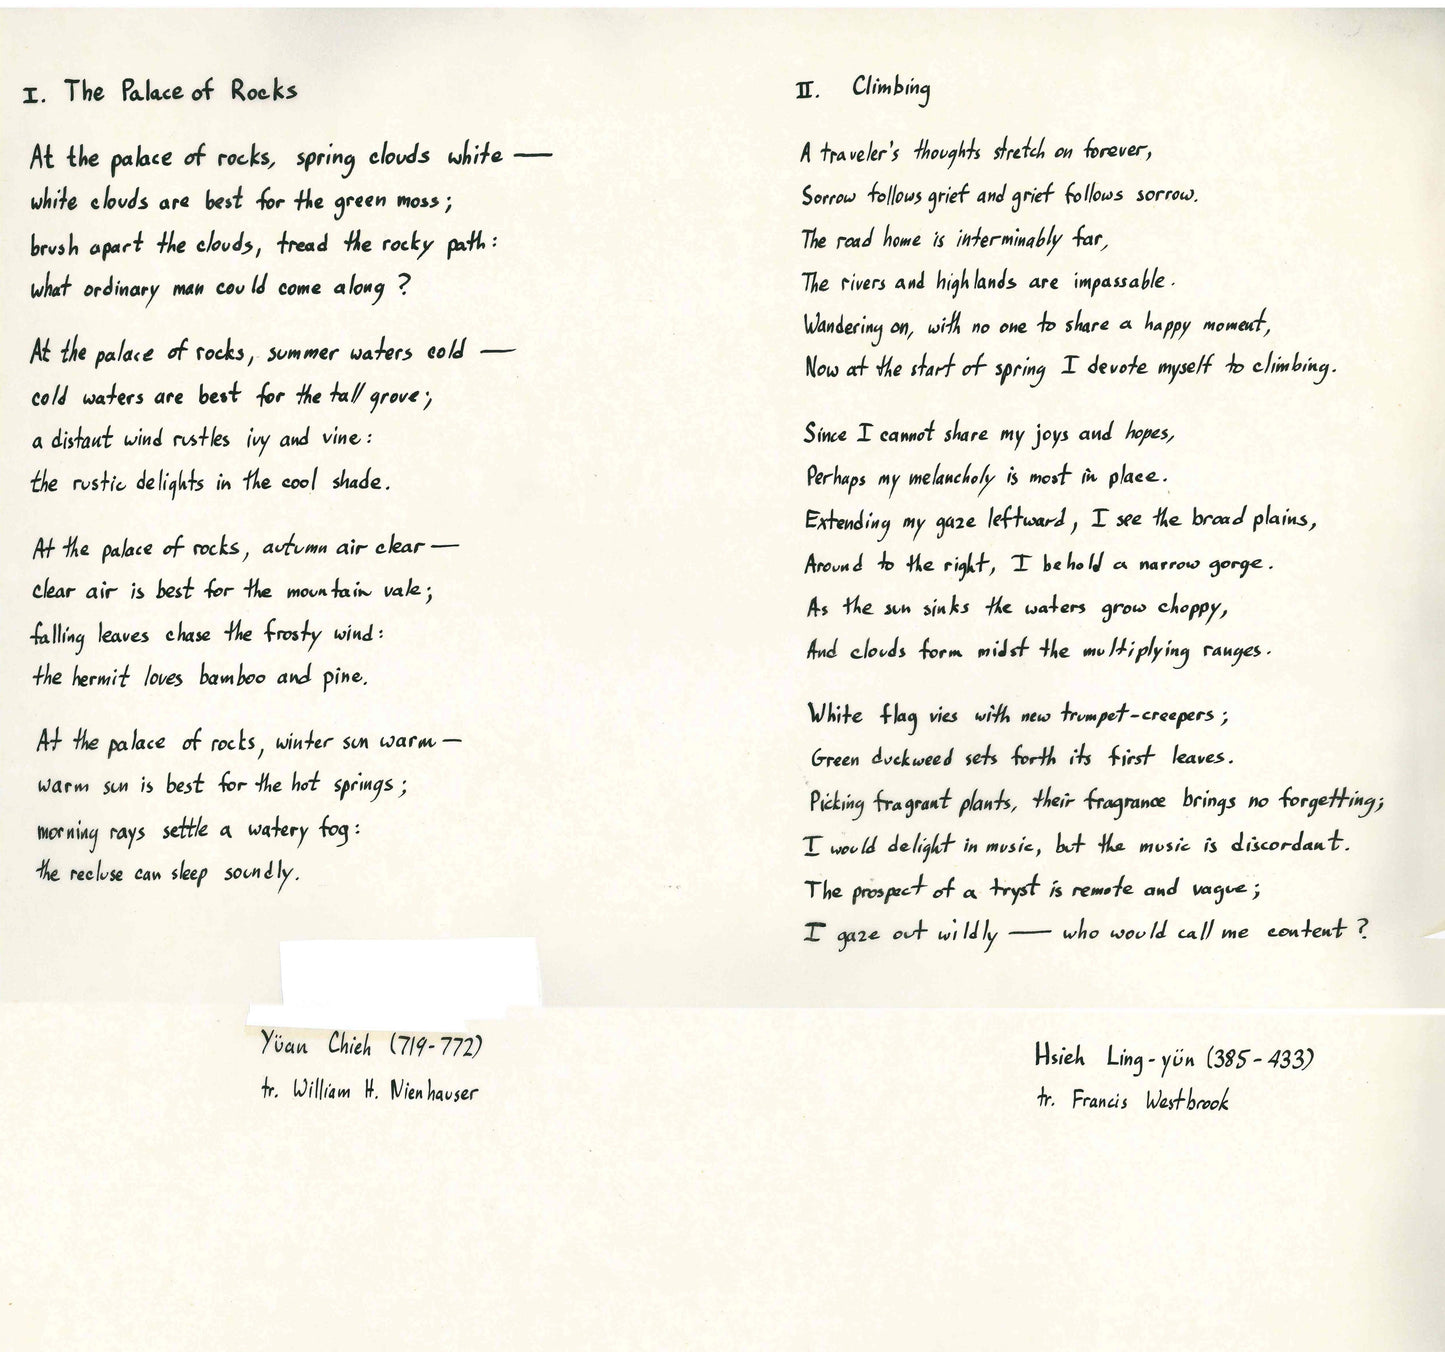 I. The Palace of Rocks
At the palace of rocks, spring clouds white —
white clouds are best for the green moss;
brush apart the clouds, tread the rocky path:
what ordinary man could come along?
At the palace of rocks, summer waters cold —
cold waters are best for the tall grove;
a distant wind rustles ivy and vine:
the rustic delights in the cool shade.
At the palace of rocks, autumn air clear —
clear air is best for the mountain vale;
falling leaves chase the frosty wind:
the hermit loves bamboo and pine.
At the palace of rocks, winter sun warm —
warm sun is best for the hot springs;
morning rays settle a watery fog:
the recluse can sleep soundly.
Yüan Chieh (719-772)
tr. William H. Nienhauser
II. Climbing
A traveler's thoughts stretch on forever,
Sorrow follows grief and grief follows sorrow.
The road home is interminably far,
The rivers and highlands are impassable.
Wandering on, with no one to share a happy moment,
Now at the start of spring I devote myself to climbing.
Since I cannot share my joys and hopes,
Perhaps my melancholy is most in place.
Extending my gaze leftward, I see the broad plains,
Around to the right, I behold a narrow gorge.
As the sun sinks the waters grow choppy,
And clouds form midst the multiplying ranges.
White flag vies with new trumpet-creepers;
Green duckweed sets forth its first leaves.
Picking fragrant plants, their fragrance brings no forgetting;
I would delight in music, but the music is discordant.
The prospect of a tryst is remote and vague;
I gaze out wildly — who would call me content?
Hsieh Ling-yün (385-433)
tr. Francis Westbrook